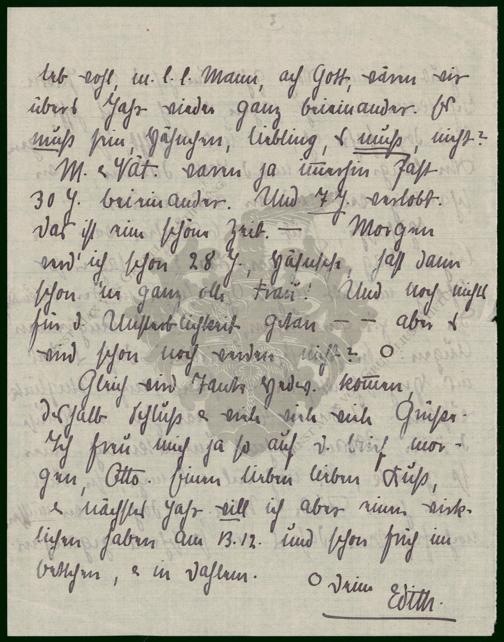 leb wohl, m. l. l. Mann, ach Gott, wären wir
übers Jahr wieder ganz beieinander. Es
muss sein, Hähnchen, Liebling, & muss, nicht?
M. & Vät. waren ja immerhin fast
30 J. beieinander. Und 7 J. verlobt.
Das ist eine schöne Zeit. — Morgen
werd' ich schon 28 J., Hähnsche, fast dann
schon 'ne ganz olle Frau! Und noch nichts
für d. Unsterblichkeit getan — aber &
wird schon noch werden nicht? O
Gleich wird Tante Hedw. kommen
deshalb Schluss & viele viele viele Grüsse.
Ich freu mich ja so auf d. brief mor-
gen, Otto. Einen lieben lieben Kuss,
& nächstes Jahr will ich aber einen wirk-
lichen haben am 13.12. und schon früh im
bettchen, & in Dahlem. O Deine
Edith.